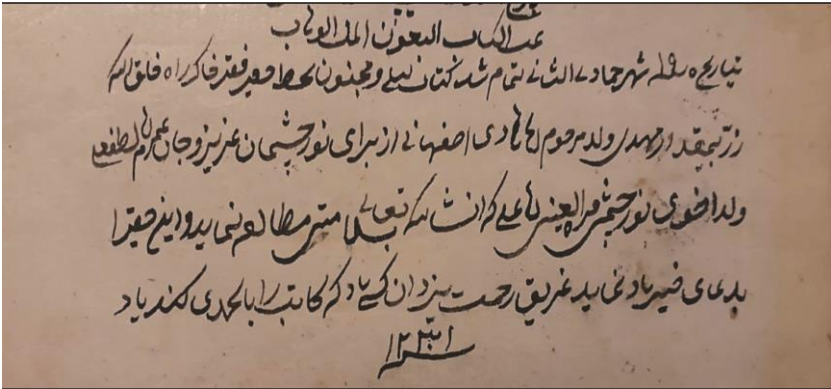 تمت الکتاب بعون الملک الوهاب
بتاریخ ۱۹ شهر جمادی الثانی تمام شد کتاب لیلی و مجنون بخط حقیر فقیر خاک راه خلق الله
ولد مرحوم هادی اصفهانی از برای نور چشمان عزیز و جان عمرم لطفعلی
ولد اخوی نور چشمی علی که انشاالله تعالی مطالعه نماید و این فقیر را
بدعای خیر یاد نماید غریق رحمت یزدان کسی باد که کاتب را بالحمدی کند یاد
سنه ۱۲۳۱